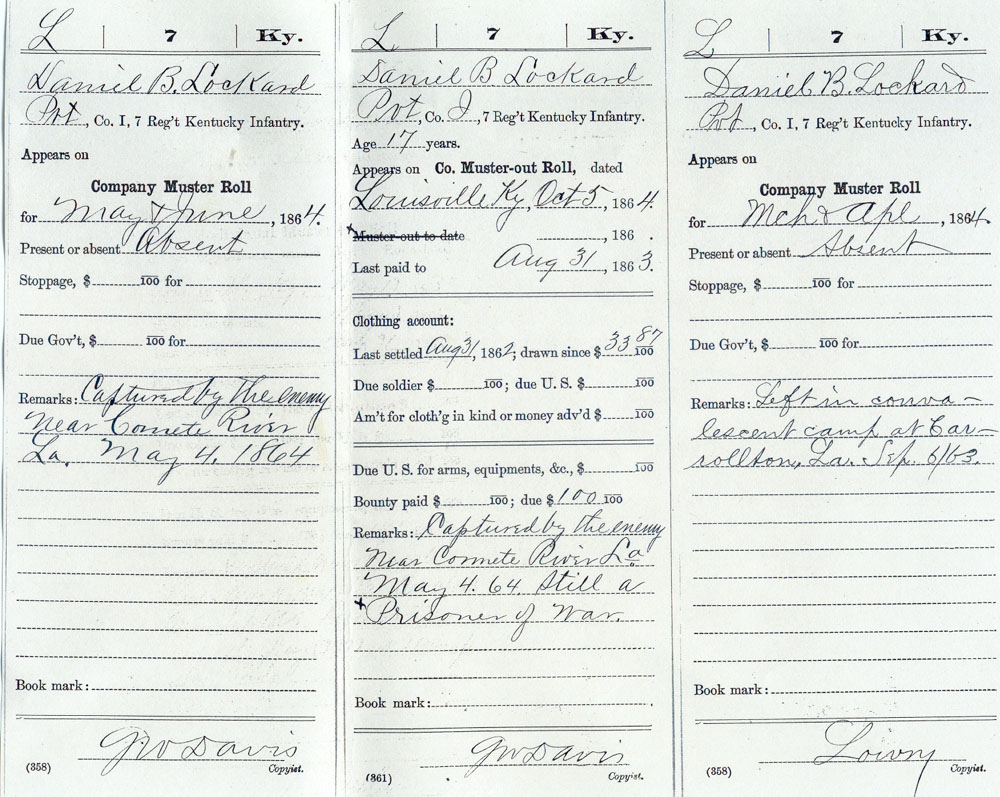 L | 7 | Ky.
Daniel B. Lockard
Pvt, Co. I, 7 Reg't Kentucky Infantry.
Appears on
Company Muster Roll
for May & June, 1864.
Present or absent Absent
Stoppage, $ 100 for
Due Gov't, $ 100 for
Remarks: Captured by the enemy
near Comete River
La. May 4. 1864
Book mark:
GW Davis
(358) Copyist.
L. | 7 | Ky.
Daniel B Lockard
Pvt, Co. I, 7 Reg't Kentucky Infantry.
Age 17 years.
Appears on Co. Muster-out Roll, dated
Louisville Ky, Oct 5, 1864.
Muster-out to date , 186 .
Last paid to Aug 31, 1863.
Clothing account:
Last settled Aug 31, 1862; drawn since $ 33 87/100
Due soldier $ 100; due U. S. $ 100
Am't for cloth'g in kind or money adv'd $ 100
Due U. S. for arms, equipments, &c., $ 100
Bounty paid $ 100; due $ 100 100
Remarks: Captured by the enemy
near Comete River La
May 4. 64. Still a
Prisoner of War.
Book mark:
GW Davis
(361) Copyist.
L | 7 | Ky.
Daniel B. Lockard
Pvt, Co. I, 7 Reg't Kentucky Infantry.
Appears on
Company Muster Roll
for Mch & Apl, 1864.
Present or absent Absent
Stoppage, $ 100 for
Due Gov't, $ 100 for
Remarks: Left in conva-
lescent camp at Car-
rollton, La. Sep. 6/63.
Book mark:
Lowry
(358) Copyist.